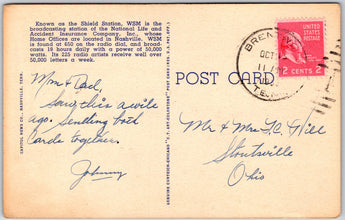 Known as the Shield Station, WSM is the
broadcasting station of the National Life and
Accident Insurance Company, Inc., whose
Home Offices are located in Nashville. WSM
is found at 650 on the radio dial, and broad-
casts 18 hours daily with a power of 50,000
watts. Its 225 radio artists receive well over
50,000 letters a week.
Mom & Dad,
Saw this a while
ago. Sending both
cards together.
Johnny
CAPITOL NEWS CO., NASHVILLE, TENN.
POST CARD
BRENT
OCT
11 AM
TENN
UNITED STATES
POSTAGE
2 CENTS 2
Mr & Mrs T.C. Hill
Stoutsville
Ohio